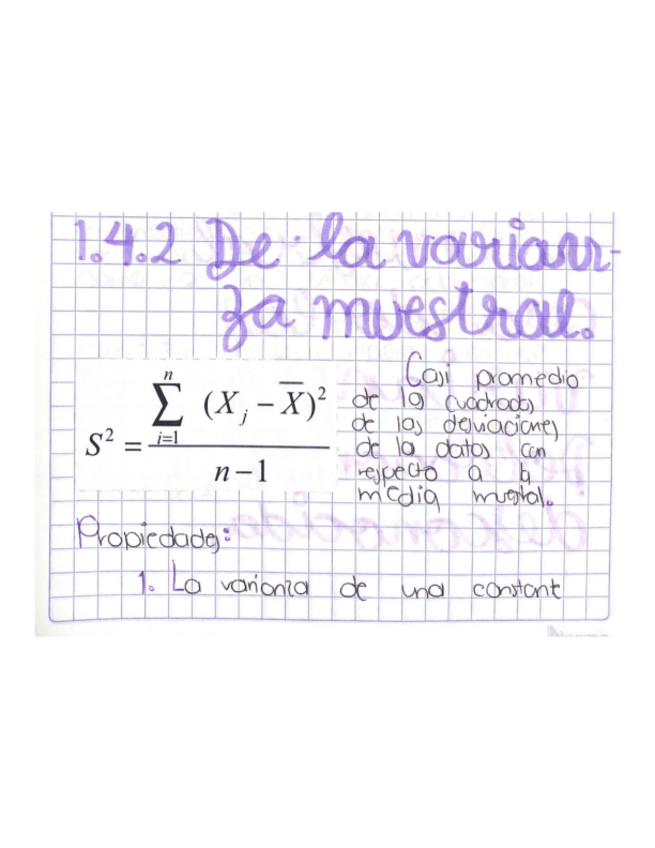 1.4.2 De la varian-
za muestral.
S² = \frac{\sum_{i=1}^{n} (X_j - \overline{X})^2}{n-1}
Casi promedio
de los cuadrados
de las desviaciones
de lo datos con
respecto a la
media muestral.
Propiedades:
1. La varianza de una constant